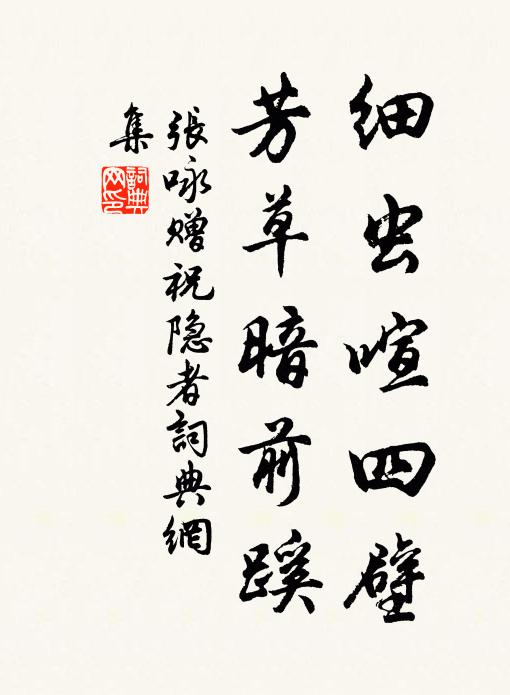 细虫喧四壁
芳草暗前蹊
張咏赠祝隐者詞典網
集
詞典
网印